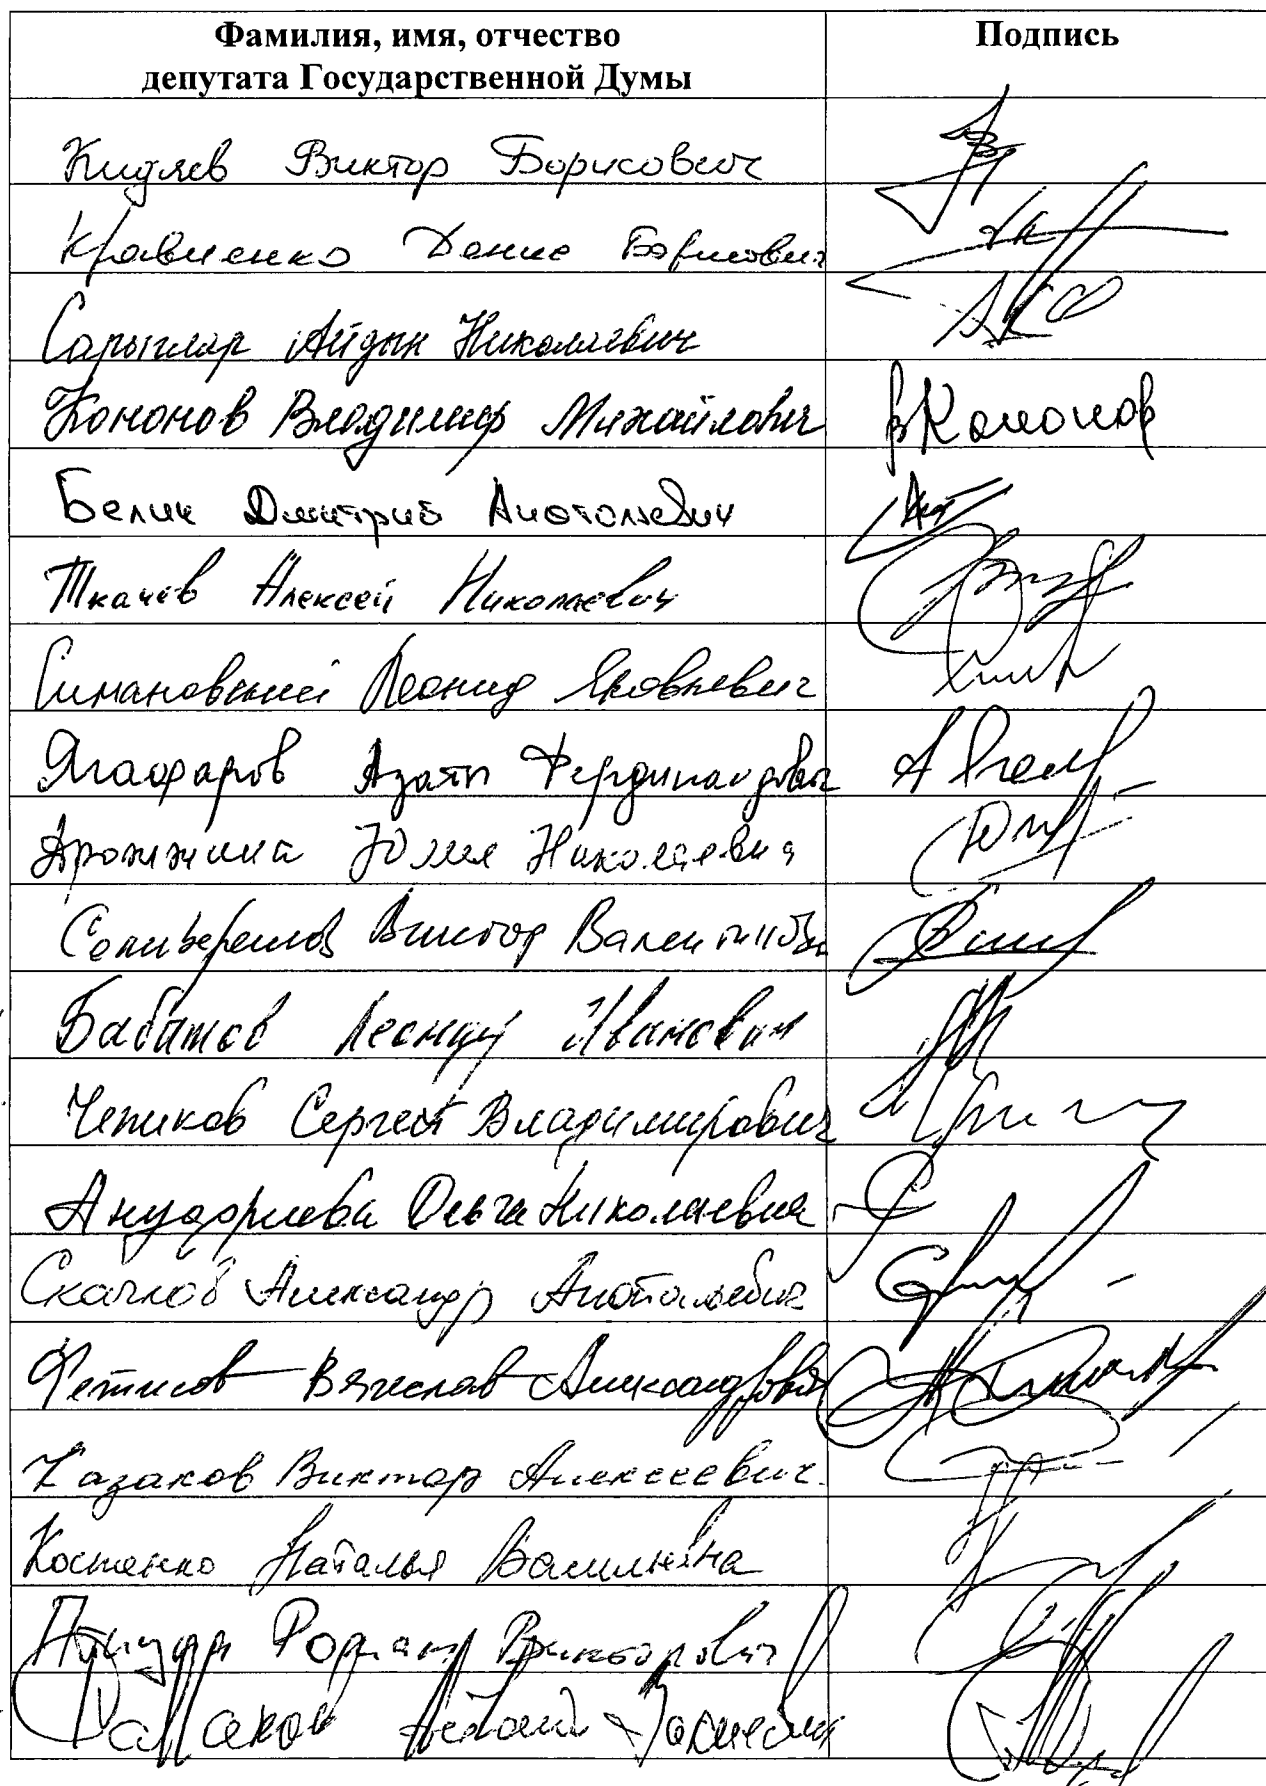 Фамилия, имя, отчество Подпись
депутата Государственной Думы
Кидяев Виктор Борисович
Кравченко Денис Борисович
Сарыглар Айдын Николаевич
Кононов Владимир Михайлович вКононов
Белик Дмитрий Анатольевич
Ткачёв Алексей Николаевич
Симановский Леонид Яковлевич
Ягафаров Азат Фердинандович
Дрожжина Юлия Николаевна
Селиверстов Виктор Валентинович
Бабашов Леонид Иванович
Чепиков Сергей Владимирович
Ануфриева Ольга Николаевна
Скачков Александр Анатольевич
Фетисов Вячеслав Александрович
Казаков Виктор Алексеевич
Костенко Наталья Васильевна
Викторович